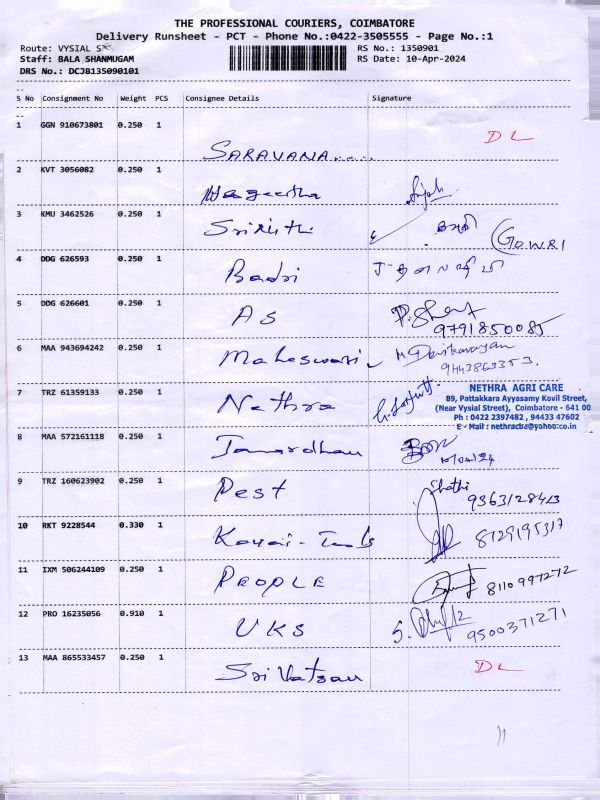 THE PROFESSIONAL COURIERS, COIMBATORE
Delivery Runsheet - PCT - Phone No.:0422-3505555 - Page No.:1
Route: VYSIAL S
RS No.: 1350901
Staff: BALA SHANMUGAM
RS Date: 10-Apr-2024
DRS No.: DCJB135090101
S No Consignment No Weight PCS Consignee Details Signature
1 GGN 910673801 0.250 1 SARAVANA..... DL
2 KVT 3056082 0.250 1
3 KMU 3462526 0.250 1 GOWRI
4 DDG 626593 0.250 1 Badri
5 DDG 626601 0.250 1 AS
9791850085
6 MAA 943694242 0.250 1 Maheswari
9443863353.
7 TRZ 61359133 0.250 1 Nethra
NETHRA AGRI CARE
89, Pattakkara Ayyasamy Kovil Street,
(Near Vysial Street), Coimbatore - 641 00
Ph : 0422 2397482 , 94433 47602
E - Mail : nethracbe@yahoo.co.in
8 MAA 572161118 0.250 1 Janardhan
10/04/24
9 TRZ 160623902 0.250 1 Pest
10 RKT 9228544 0.330 1 8129195317
11 IXM 506244109 0.250 1 PEOPLE 8110997272
12 PRO 16235056 0.910 1 UKS 9500371271
13 MAA 865533457 0.250 1 Sri Vatsan DL